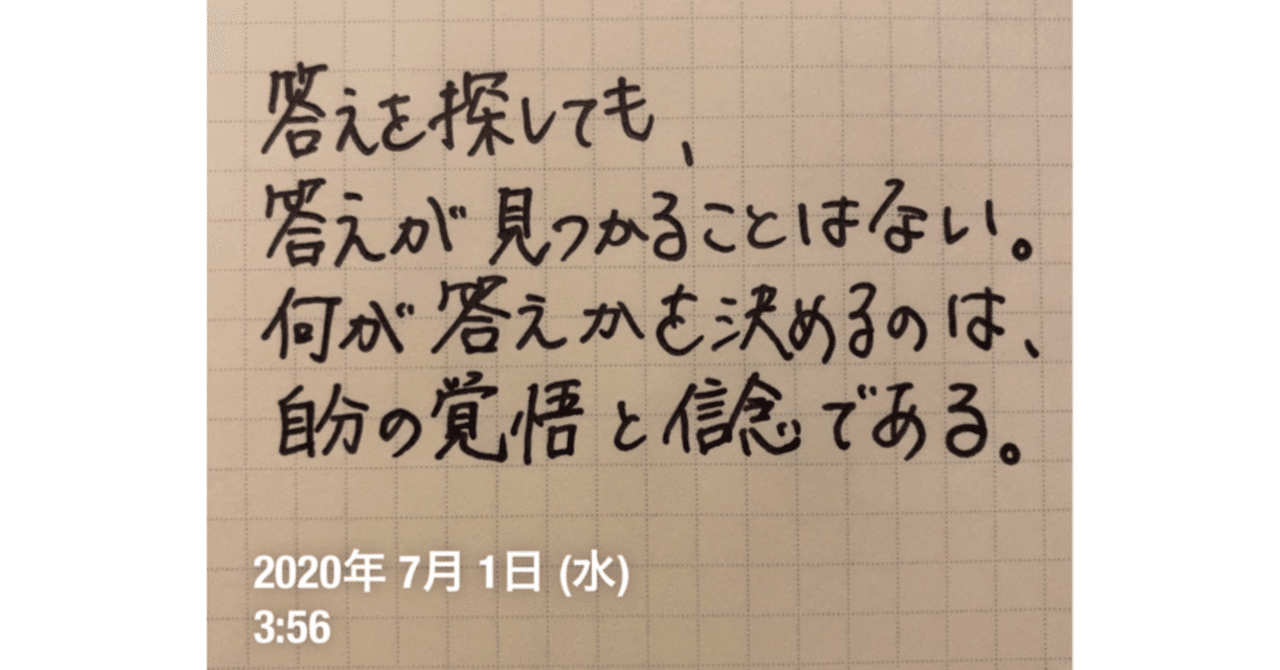 答えを探しても、
答えが見つかることはない。
何が答えかを決めるのは、
自分の覚悟と信念である。
2020年 7月 1日 (水)
3:56